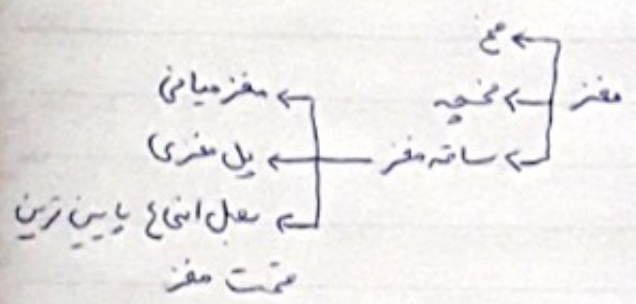 مغز
مخ
مخچه
ساقه مغز
مغز میانی
پل مغزی
بصل النخاع پایین ترین
قسمت مغز